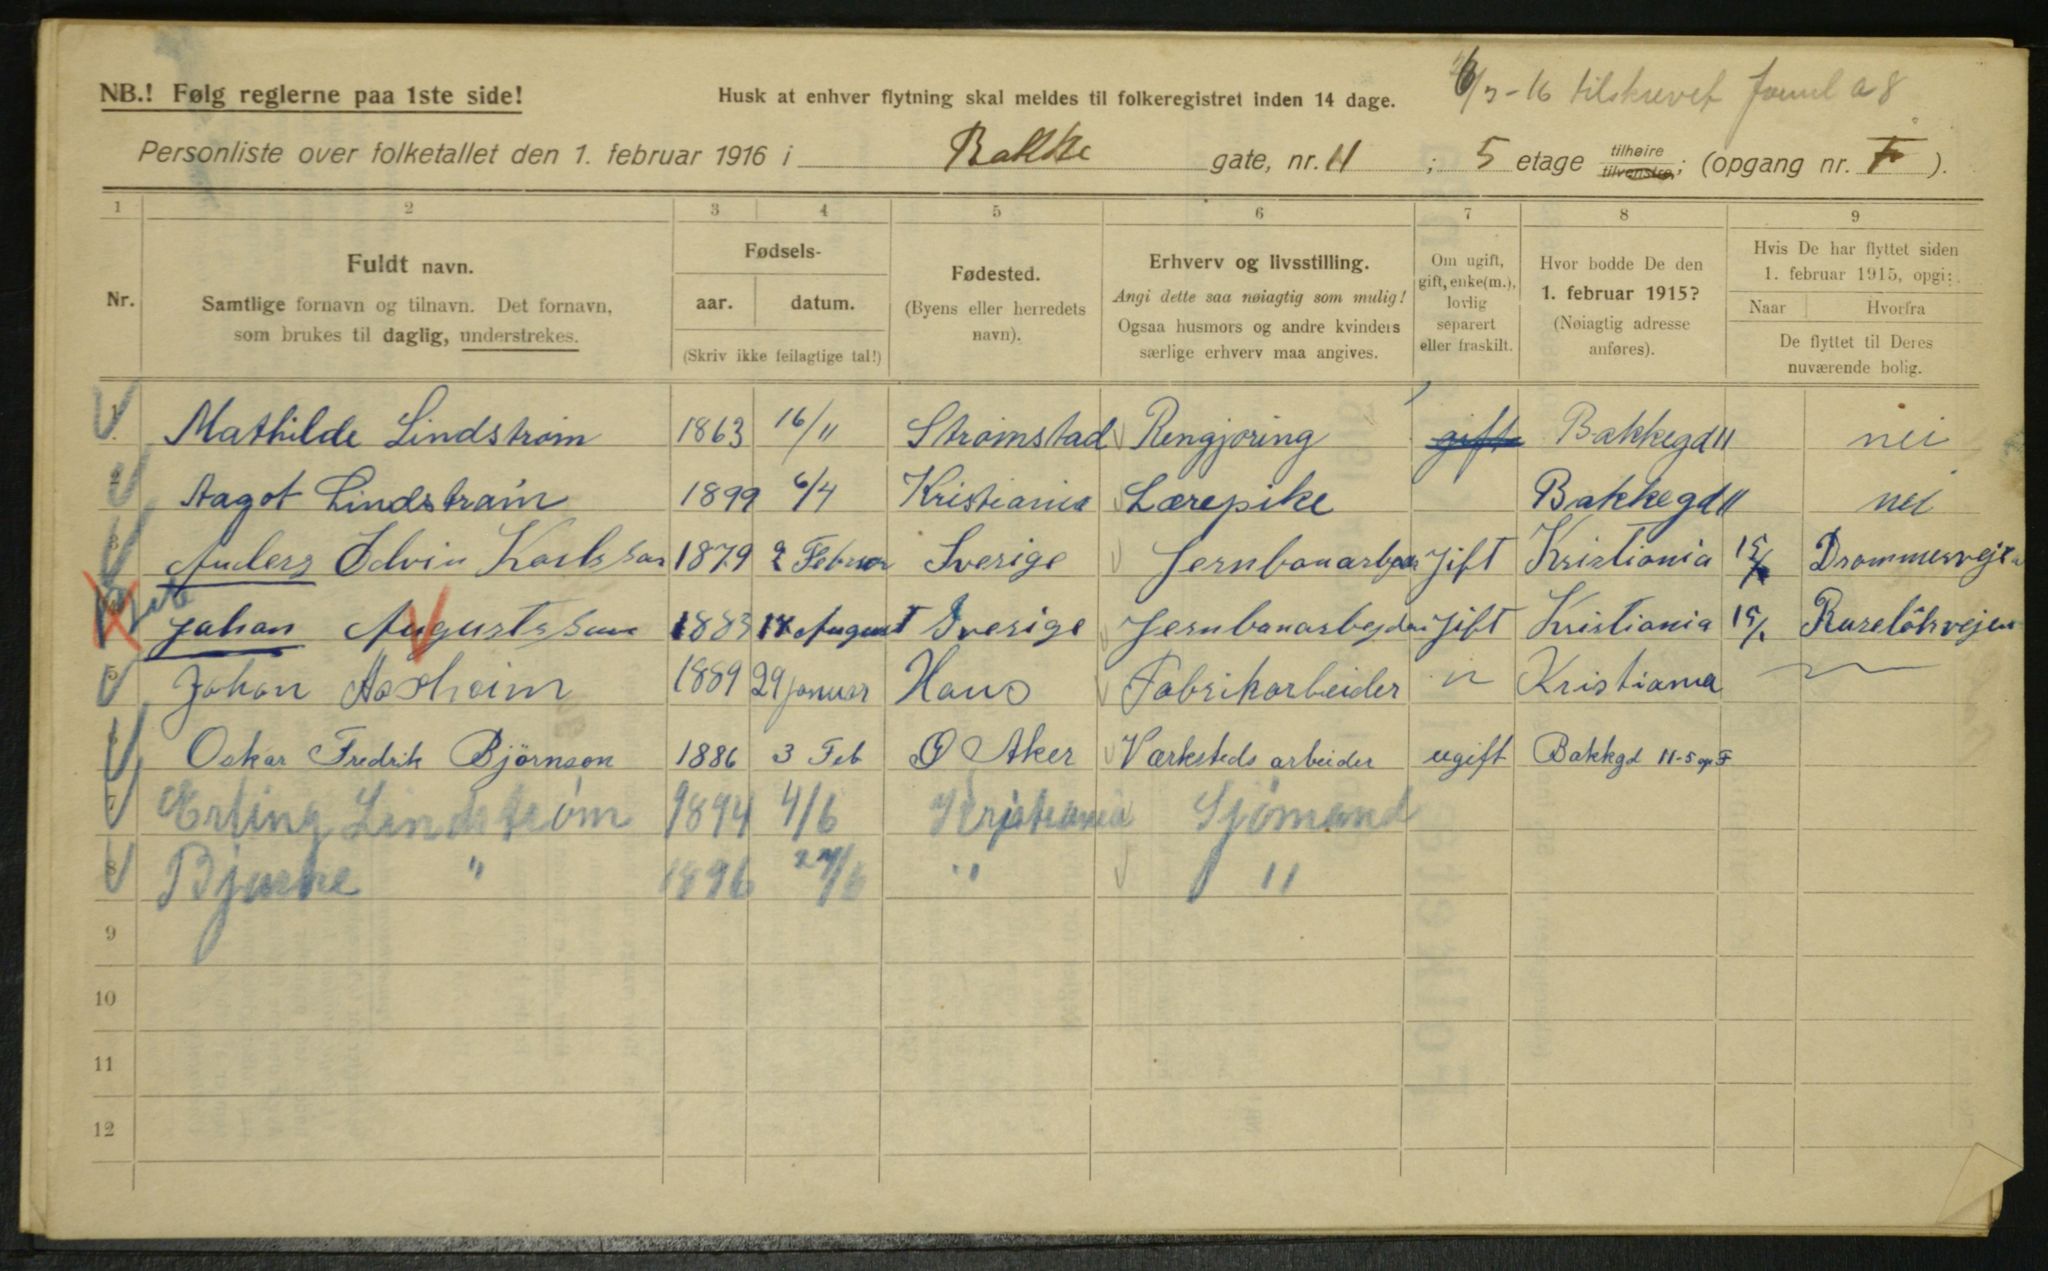 NB.! Følg reglerne paa 1ste side!
Husk at enhver flytning skal meldes til folkeregistret inden 14 dage.
6/3-16 tilskrevet
Personliste over folketallet den 1. februar 1916 i Bakke gate, nr. 11 ; 5 etage tilhøire tilvenstre; (opgang nr. F ).
1 2 3 4 5 6 7 8 9
Nr.
Fuldt navn.
Samtlige fornavn og tilnavn. Det fornavn,
som brukes til daglig, understrekes.
Fødsels-
aar. datum.
(Skriv ikke feilagtige tal!)
Fødested.
(Byens eller herredets
navn).
Erhverv og livsstilling.
Angi dette saa nøiagtig som mulig!
Ogsaa husmors og andre kvinders
særlige erhverv maa angives.
Om ugift,
gift, enke(m.),
lovlig
separert
eller fraskilt.
Hvor bodde De den
1. februar 1915?
(Nøiagtig adresse
anføres).
Hvis De har flyttet siden
1. februar 1915, opgi:
Naar Hvorfra
De flyttet til Deres
nuværende bolig.
Mathilde Lindstrøm 1863 16/11 Strømstad Rengjøring gift Bakkegd 11 nei
Aagot Lindstrøm 1899 6/4 Kristiania Lærepike Bakkegd 11 nei
Anders Edvin Karlsson 1879 2 Februar Sverige Jernbanarbejdar Gift Kristiania 15/ Drammensvejen
Johan Augustsson 1883 18 August Sverige Jernbanarbejdar Gift Kristiania 15/1
5 Johan Aasheim 1889 29 januar Haus Fabrikarbeider " Kristiania
Oskar Fredrik Björnson 1886 3 Feb Ø Aker Værksteds arbeider ugift Bakkgd 11-5 op F
7 Erling Lindstrøm 1894 4/6 Kristiania Sjømand
8 Bjarne " 1896 27/6 " "
9
10
11
12